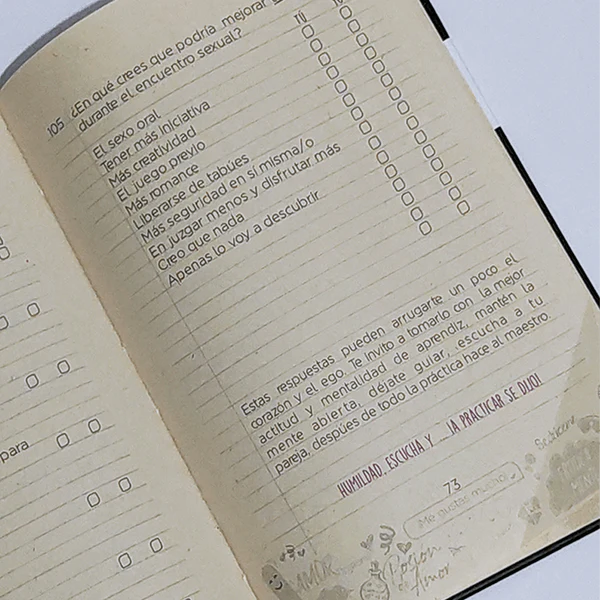 105 ¿En qué crees que podría mejorar
durante el encuentro sexual?
TÚ
El sexo oral
Tener más iniciativa
Más creatividad
El juego previo
Más romance
Liberarse de tabúes
Más seguridad en sí misma/o
En juzgar menos y disfrutar más
Creo que nada
Apenas lo voy a descubrir
para
Estas respuestas pueden arrugarte un poco el
corazón y el ego. Te invito a tomarlo con la mejor
actitud y mentalidad de aprendiz, mantén la
mente abierta, déjate guiar, escucha a tu
pareja, despúes de todo la práctica hace al maestro.
HUMILDAD, ESCUCHA Y ...¡A PRACTICAR SE DIJO!
73
¡Me gustas mucho!
Seducir
AMOR
Poción
de Amor